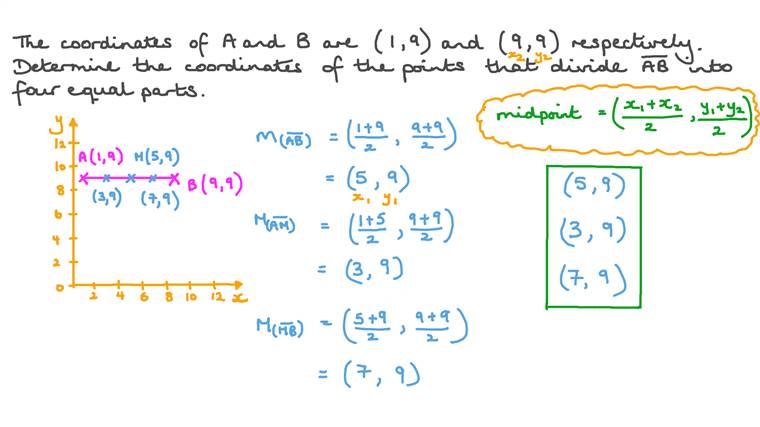 The coordinates of A and B are (1,9) and (9,9) respectively.
x₂ y₂
Determine the coordinates of the points that divide A̅B̅ into
four equal parts.
midpoint = ((x₁+x₂)/2, (y₁+y₂)/2)
y
12
10
8
6
4
2
0
2 4 6 8 10 12 x
A(1,9) M(5,9)
B(9,9)
(3,9) (7,9)
M(A̅B̅) = ((1+9)/2, (9+9)/2)
= (5, 9)
x₁ y₁
M(A̅M̅) = ((1+5)/2, (9+9)/2)
= (3, 9)
M(M̅B̅) = ((5+9)/2, (9+9)/2)
= (7, 9)
(5, 9)
(3, 9)
(7, 9)